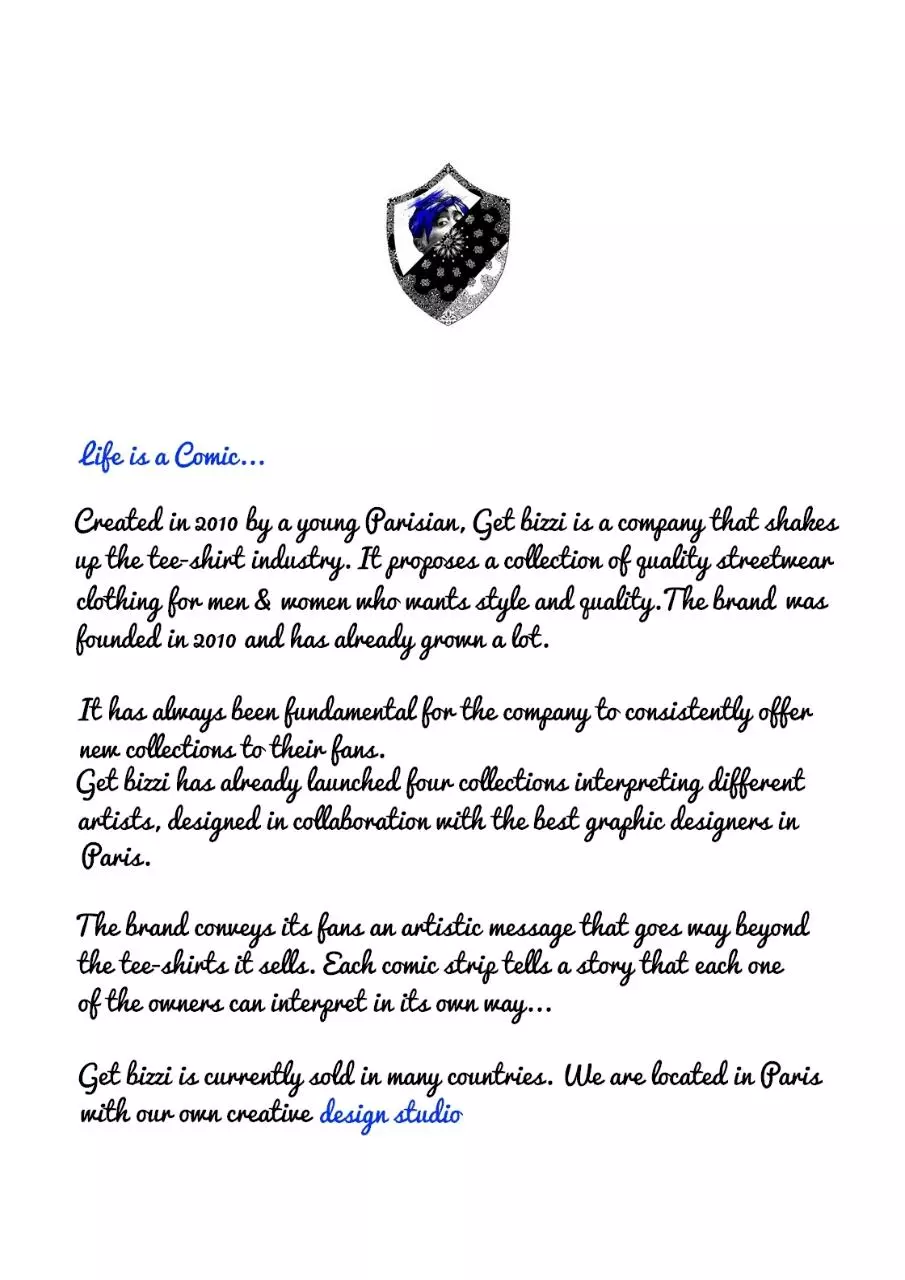 Life is a Comic...
Created in 2010 by a young Parisian, Get bizzi is a company that shakes
up the tee-shirt industry. It proposes a collection of quality streetwear
clothing for men & women who wants style and quality.The brand was
founded in 2010 and has already grown a lot.
It has always been fundamental for the company to consistently offer
new collections to their fans.
Get bizzi has already launched four collections interpreting different
artists, designed in collaboration with the best graphic designers in
Paris.
The brand conveys its fans an artistic message that goes way beyond
the tee-shirts it sells. Each comic strip tells a story that each one
of the owners can interpret in its own way...
Get bizzi is currently sold in many countries. We are located in Paris
with our own creative design studio